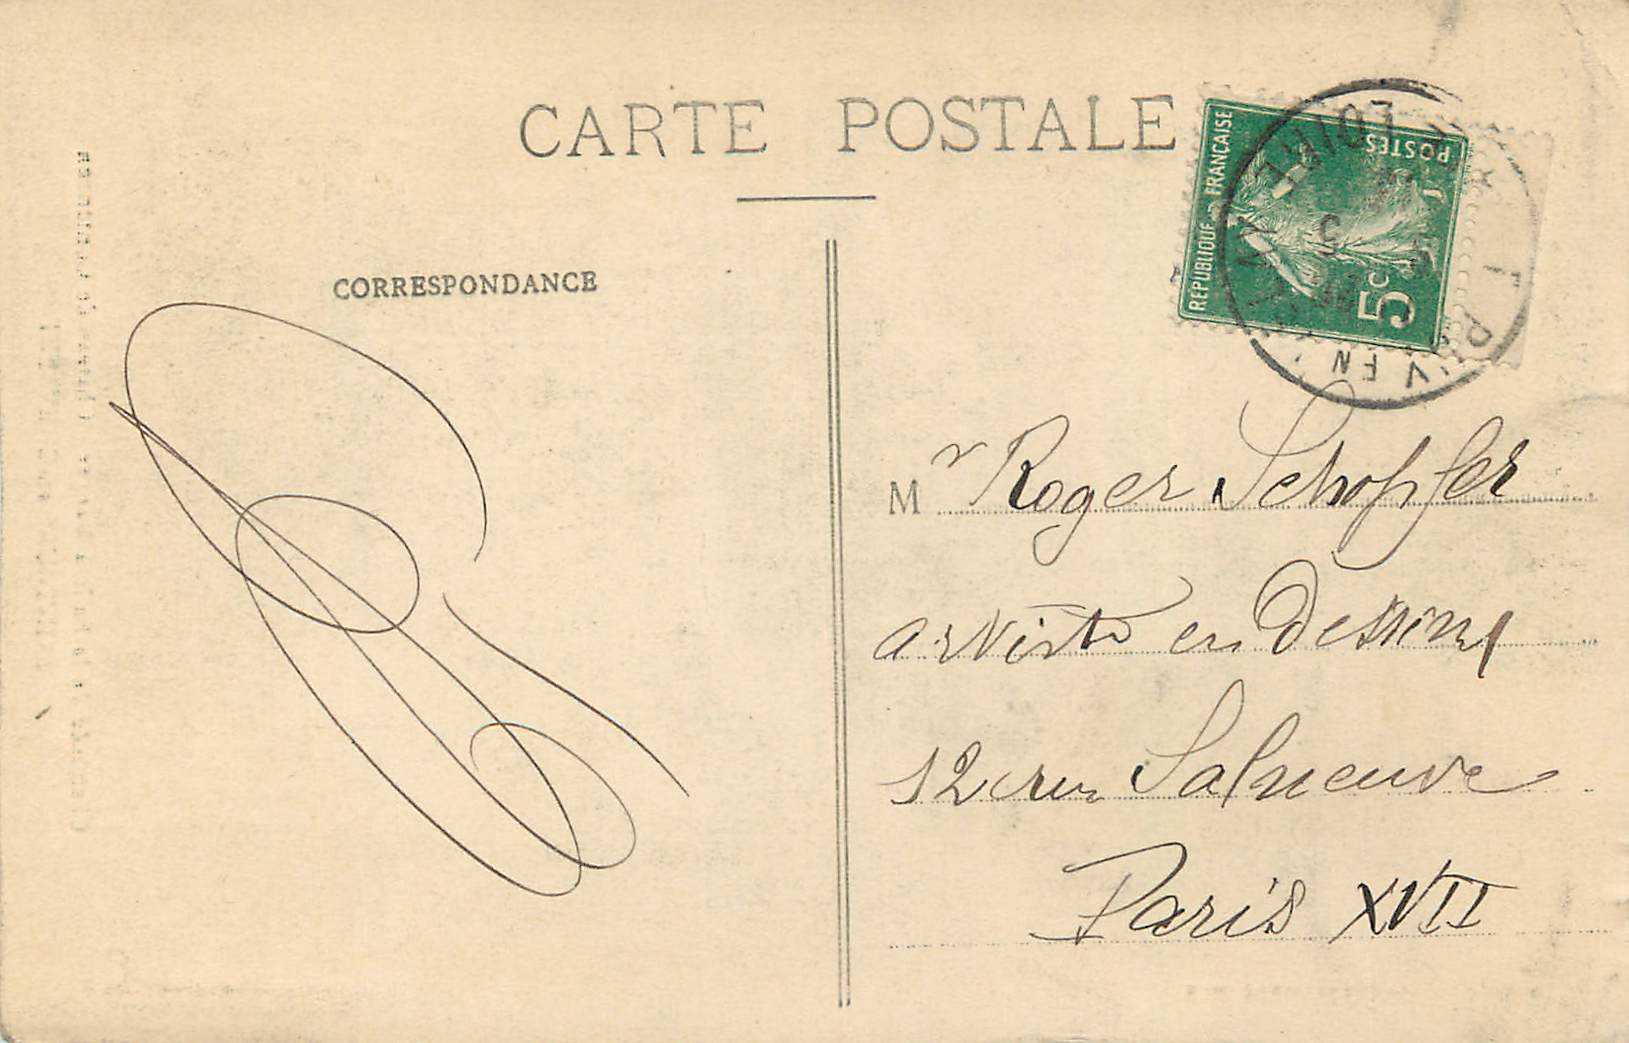 CARTE POSTALE
CORRESPONDANCE
REPUBLIQUE FRANÇAISE
POSTES
5c
LOIRE
Mr Roger Schopfer
artiste en Dessins
12 rue Salneuve
Paris XVII